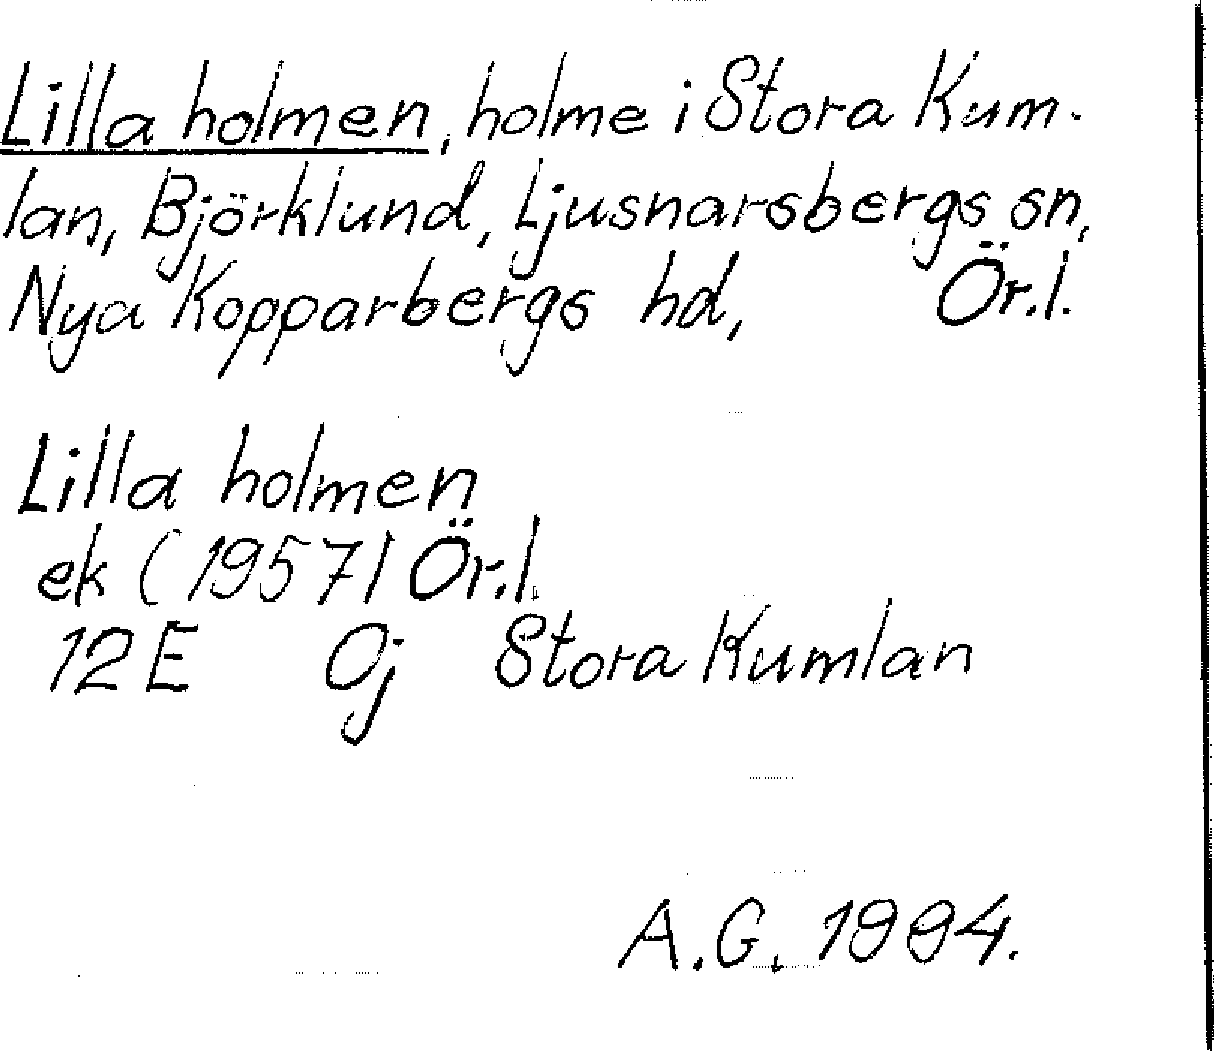 Lilla holmen, holme i Stora Kum-
lan, Björklund, Ljusnarsbergs sn,
Nya Kopparbergs hd, Ör.l.
Lilla holmen
ek (1957) Ör.l.
12E 0j Stora Kumlan
A.G. 1994.